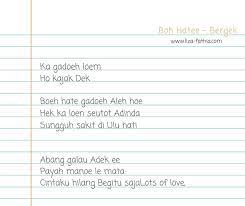 Boh Hatee - Bergek
www.liza-fathia.com
Ka gadoeh loem
Ho kajak Dek
Boeh hate gadoeh Aleh hoe
Hek ka loen seutot Adinda
Sungguh sakit di Ulu hati
Abang galau Adek ee
Payah manoe le mata
Cintaku hilang Begitu sajaLots of love,